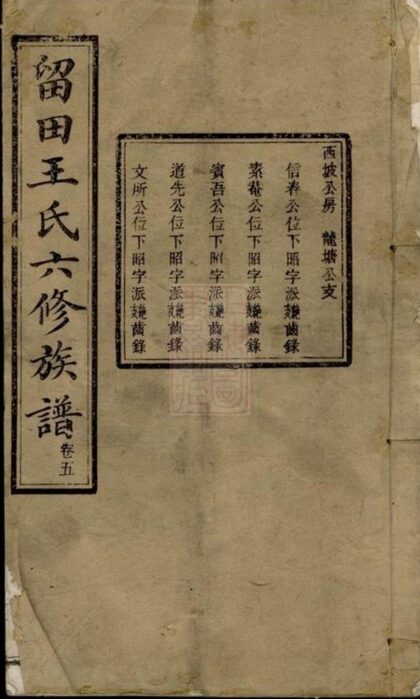 留田王氏六修族譜
卷五
西坡公房 龍塘公支
信春公位下昭字派支繩齒錄
素菴公位下昭字派支繩齒錄
賓吾公位下昭字派支繩齒錄
道先公位下昭字派支繩齒錄
文所公位下昭字派支繩齒錄